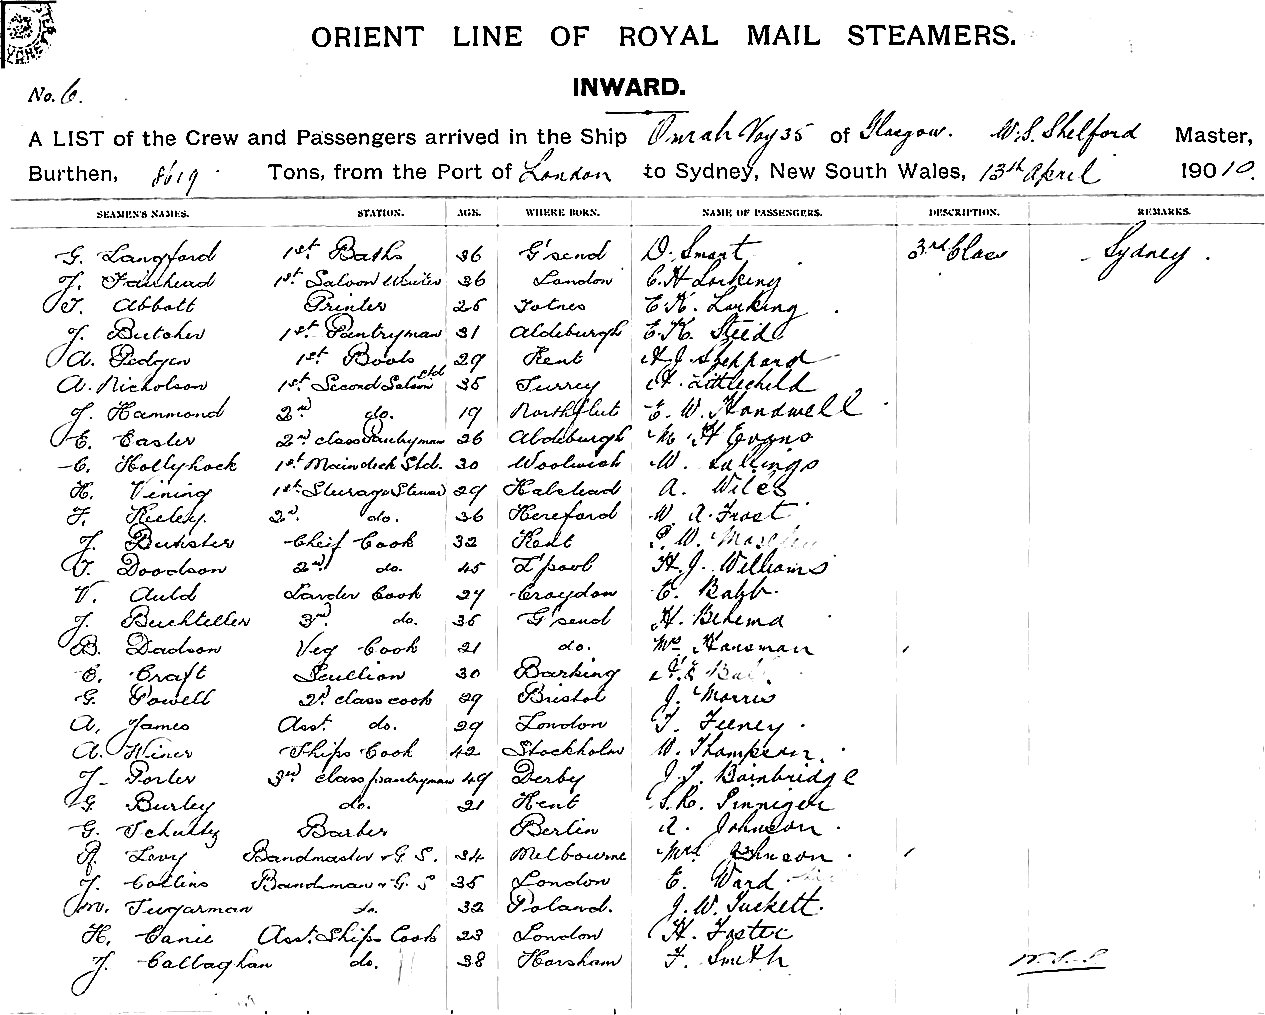 ORIENT LINE OF ROYAL MAIL STEAMERS.
INWARD.
No. 6.
A LIST of the Crew and Passengers arrived in the Ship Omrah Voy 35 of Glasgow. W.S. Shelford Master,
Burthen, 8619 Tons, from the Port of London to Sydney, New South Wales, 13th April 1910.
SEAMEN'S NAMES. STATION. AGE. WHERE BORN. NAME OF PASSENGERS. DESCRIPTION. REMARKS.
G. Langford 1st Baths 36 G'send D. Smart 3rd Class Sydney.
J. Fairhead 1st Saloon Waiter 36 London C. H Larking
T. Abbott Printer 25 Totnes E. K. Larking
J. Butcher 1st Pantryman 31 Aldeburgh E. K. Steed
A. Pedgen 1st Boots 29 Kent A. J. Sheppard
A. Nicholson 1st Second Saloon Std 35 Turrey A. Littlechild
J. Hammond 2nd do. 19 Northfleet E. W. Handwell
E. Easter 2nd class Pantryman 26 Aldeburgh M. H Evans
C. Hollyhock 1st Maindeck Std. 30 Woolwich W. Lallings
H. Vining 1st Steerage Steward 29 Halstead A. Wiles
F. Keeley. 2nd. do. 36 Hereford W. A. Frost
J. Bunster Cheif Cook 32 Kent W.
Doodson 2nd do. 45 L'pool H. J. Williams
V. Auld Larder Cook 27 Croydon E. Babb.
J. Buchteller 3rd. do. 35 G'send H. Behema
B. Dadson Veg Cook 21 do. Mrs Hansman
C. Craft Scullion 30 Barking
G. Powell 2nd class cook 29 Bristol J. Morris
A. James Asst. do. 29 London T. Feeney.
A. Winer Ships Cook 42 Stockholm W. Thompson.
J. Porter 3rd class pantryman 49 Derby J. T. Bainbridge
G. Burley do. 21 Kent
G. Schultz Barber Berlin A. Johnson.
R. Levy Bandmaster & G. S. 34 Melbourne Mrs Johnson.
J. Collins Bandsman & G. S 35 London E. Ward
M. Sugarman do. 32 Poland. J. W. Tuckett.
H. Canie Asst. Ships Cook 23 London H. Foster
J. Callaghan do. 38 Horsham F. Smith
W.S.S